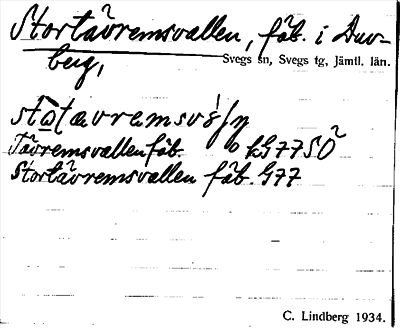 Stortåvremsvallen, fäb. i Duv-
berg,
Svegs sn, Svegs tg, Jämtl. län.
Tåvremsvallen fäb. G77SÖ
Stortåvremsvallen fäb. G77
C. Lindberg 1934.